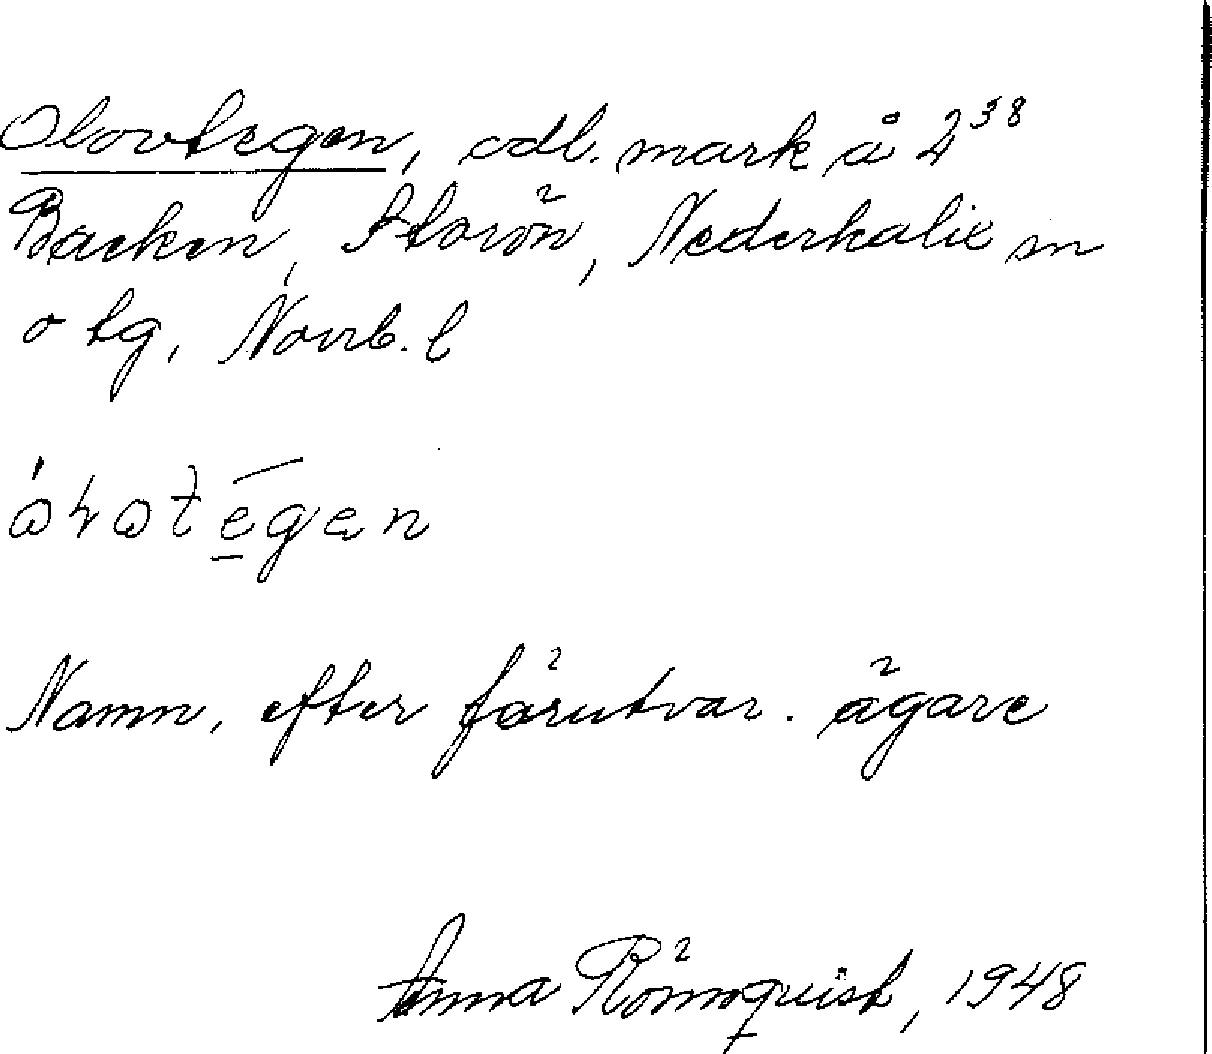 Olovtegen, odl. mark å 2³⁸
Backen, Storön, Nederkalix sn
o tg, Norrb. l
Namn, efter förutvar. ägare
Anna Rönnquist, 1948